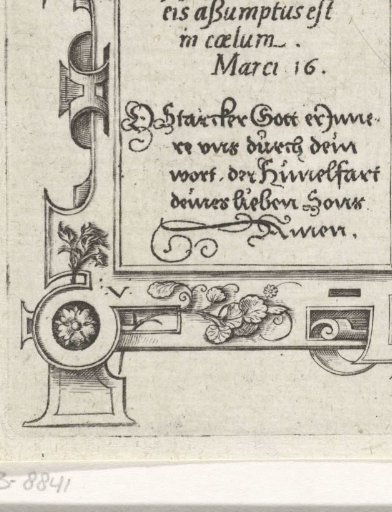 eis aßumptus est
in cœlum.
Marci 16.
O Starcker Gott erJnne-
re vns durch dein
wort, der Himelfart
deines lieben Sons.
Amen.
V.
8841